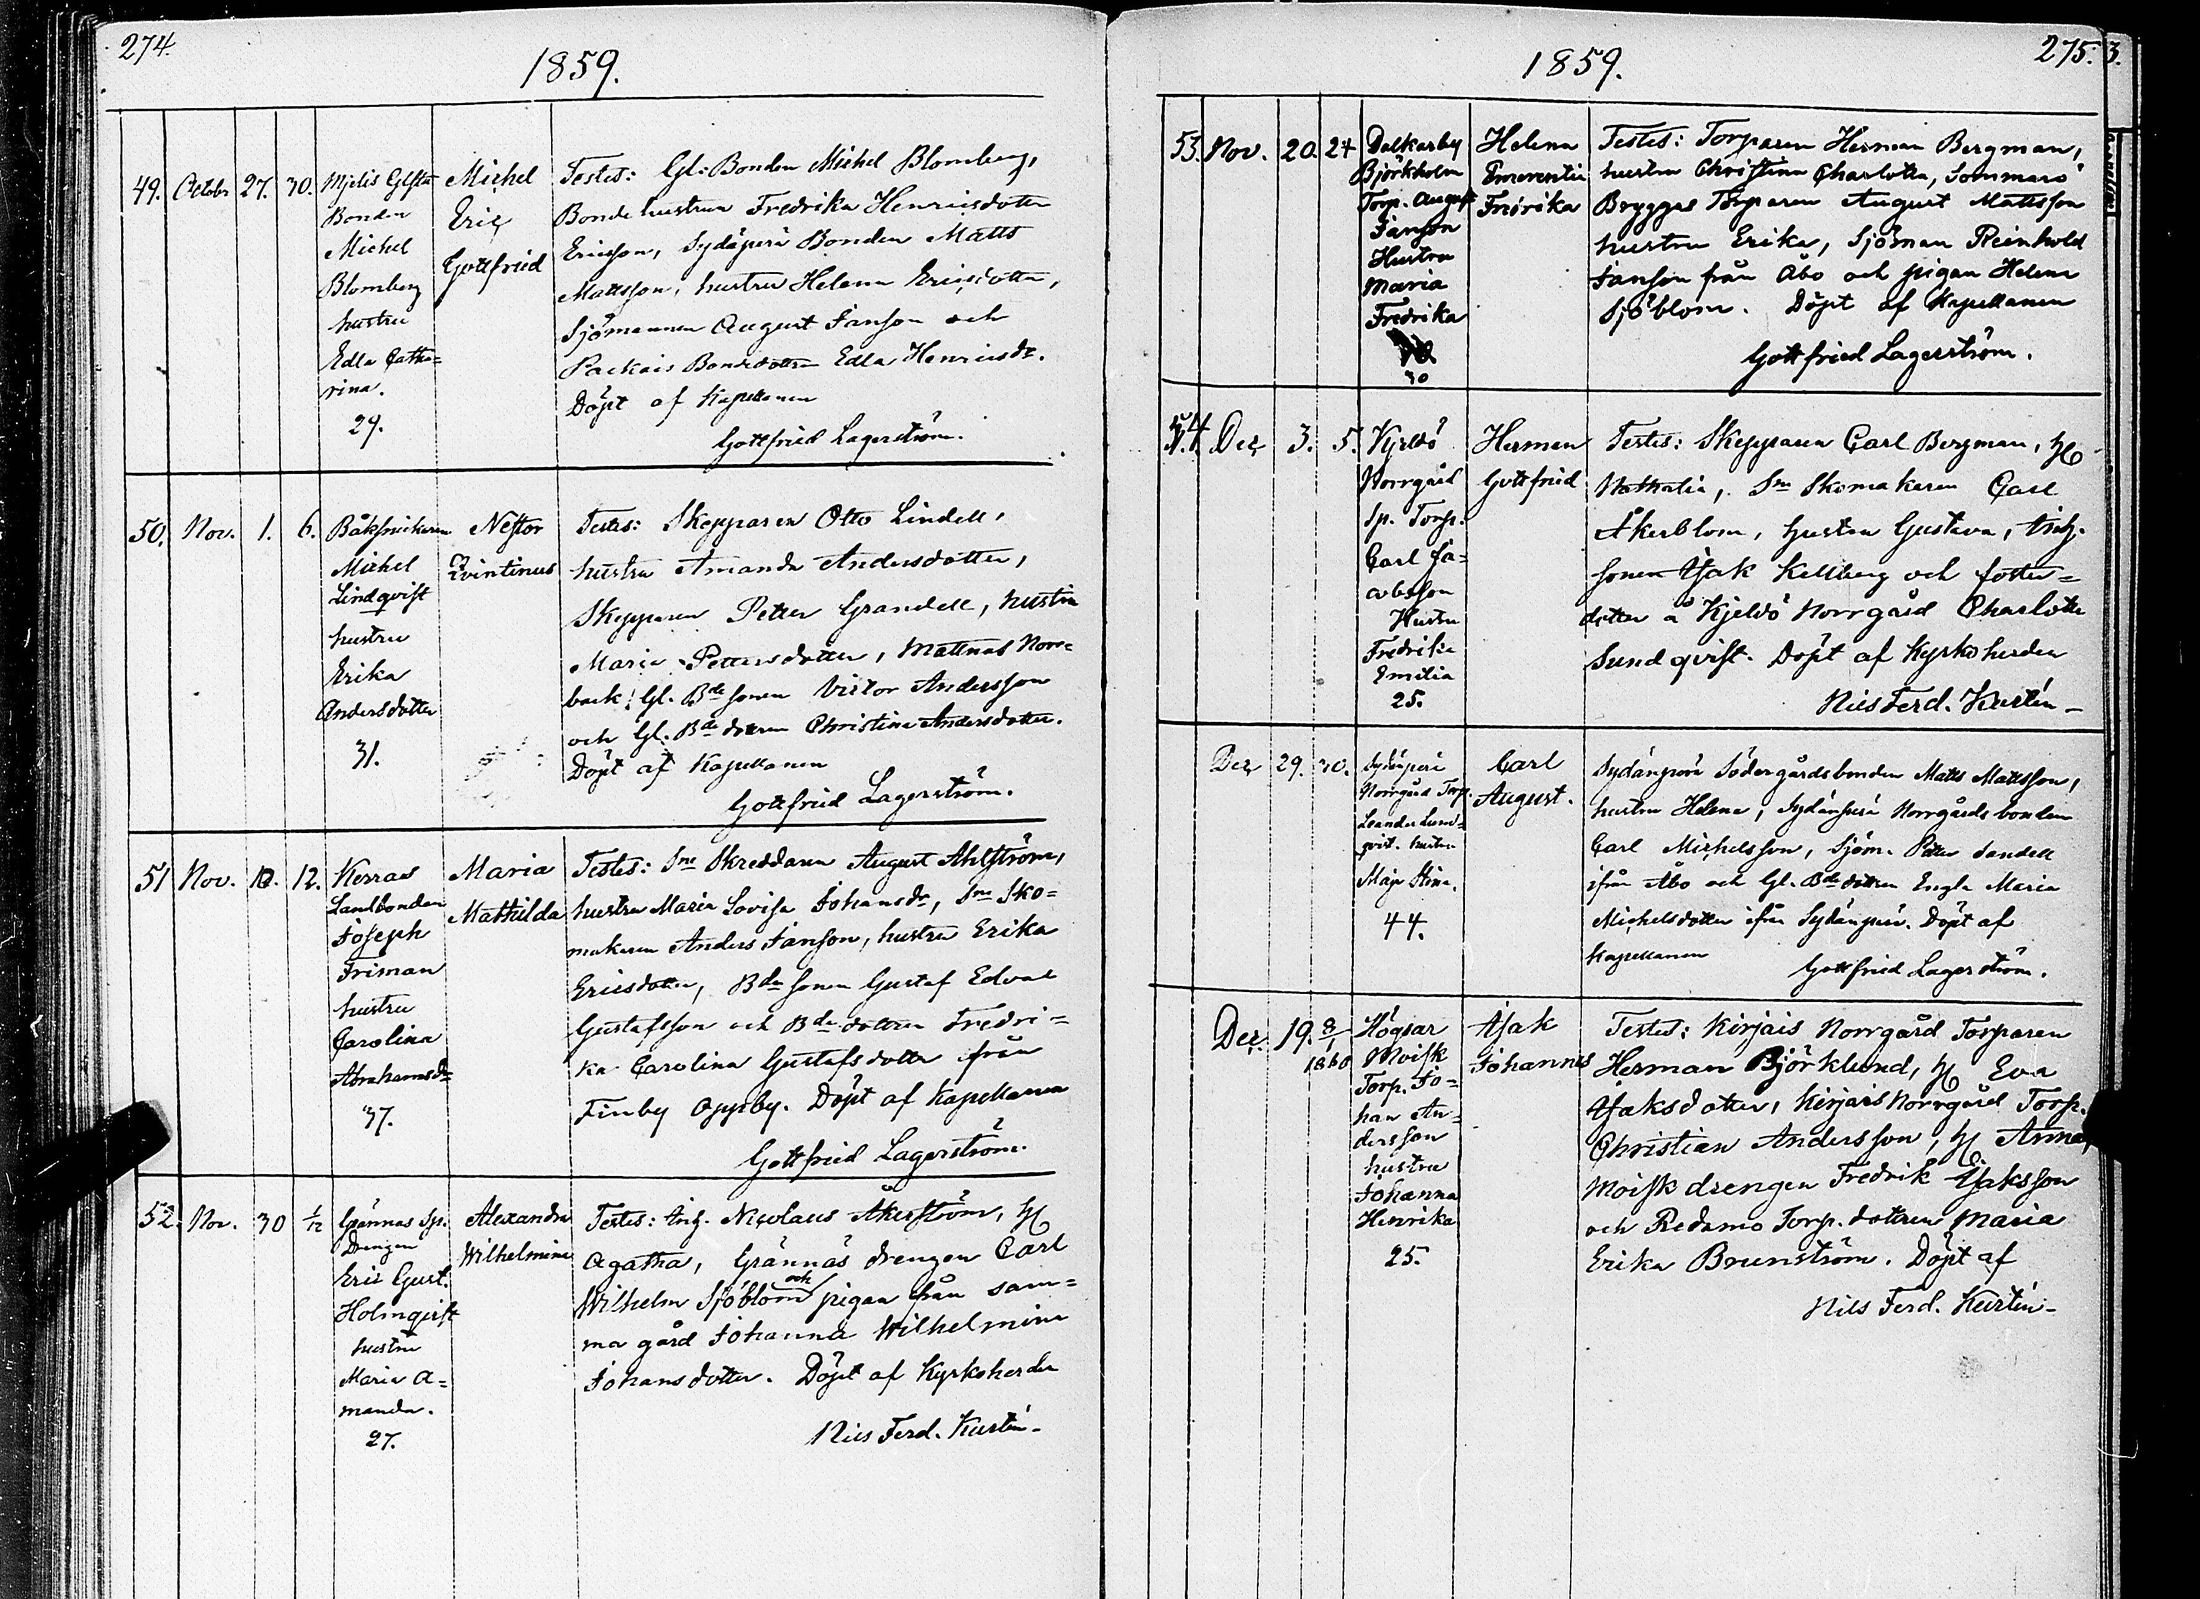 274.
1859.
49. Octobr 27. 30.
Mjelis Glsta
Bonden
Michel
Blomberg
hustru
Edla Catha=
rina.
29.
Michel
Eric
Gottfried
Testes: Gl. Bonden Michel Blomberg,
Bonde hustrun Fredrika Henricsdotter
Ericsson, Sydäperä Bonden Matts
Mattsson, hustru Helena Ericsdotter,
Sjömannen August Janson och
Packais Bondedottren Edla Henricsdr.
Döpt af Kapellanen
Gottfried Lagerström.
50. Nov. 1. 6.
Michel
Lindqvist
hustru
Erika
Andersdotter
31.
Nestor
Qvintinus
Testes: Skepparen Otto Lindell,
hustru Amanda Andersdotter,
Skepparen Petter Grandell, hustru
Maria Pettersdotter, Mattnäs Norr=
back, Gl. Bde sonen Victor Andersson
och Gl. Bde dottren Christina Andersdotter.
Döpt af Kapellanen
Gottfried Lagerström.
51 Nov. 12.
Kerras
Landbonden
Joseph
Friman
hustru
Carolina
Abrahamsdr
37.
Maria
Mathilda
Testes: Sne Skreddaren August Ahlström,
hustru Maria Lovisa Johansdr, Sne Sko=
makaren Anders Janson, hustru Erika
Ericsdotter, Bde sonen Gustaf Edvad
Gustafsson och Bde dottren Fredri=
ka Carolina Gustafsdotter från
Finby Oppsby. Döpt af Kapellanen
Gottfried Lagerström.
52. Nov. 30 1/12
Grännäs Sp.
Drengen
Eric Gust.
Holmqvist
hustru
Maria A=
manda.
27.
Alexandra
Wilhelmina
Testes: Inh. Nicolaus Åkerström, H
Agatha, Grännäs drengen Carl
Wilhelm Sjöblom och pigan från sam=
ma gård Johanna Wilhelmina
Johansdotter. Döpt af Kyrkoherden
Nils Ferd. Kurtén
275.
3.
1859.
53. Nov. 20. 24
Dalkarby
Björkholm
Torp. August
Janson
Hustru
Maria
Fredrika
30
Helena
Emerentia
Fredrika
Testes: Torparen Herman Bergman,
hustru Christina Charlotta, Sommarö
Bryggas Torparen August Mattsson
hustru Erika, Sjöman Reinhold
Janson från Åbo och pigan Helena
Sjöblom. Döpt af Kapellanen
Gottfried Lagerström.
54. Dec 3. 5.
Kjeldö
Norrgård
Sp. Torp.
Carl Ja=
cobsson
Hustru
Fredrika
Emilia
25.
Herman
Gottfried
Testes: Skepparen Carl Bergman, H
Nathalia, Sne Skomakaren Carl
Åkerblom, hustru Gustava, Inh.
sonen Isak Kellberg och foster=
dotter å Kjeldö Norrgård Charlotta
Sundqvist. Döpt af Kyrkoherden
Nils Ferd. Kurtén
Dec 29. 30.
Sydänperä
Norrgård Torp.
Leander Lund=
qvist. hustru
Maja Stina.
44.
Carl
August.
Sydänperä Södergårdsbonden Matts Mattsson,
hustru Helena, Sydänperä Norrgårdsbonden
Carl Michelsson, Sjöm. Petter Sandell
ifrån Åbo och Gl. Bde dottren Engla Maria
Michelsdotter ifrån Sydänperä. Döpt af
Kapellanen
Gottfried Lagerström.
Dec. 19. 8/1
1860
Högsar
Moisk
Torp. Jo=
han An=
dersson
hustru
Johanna
Henrika
25.
Isak
Johannes
Testes: Kirjais Norrgård Torparen
Herman Björklund, H Eva
Isaksdotter, Kirjais Norrgård Torp.
Christian Andersson, H. Anna,
Moisk drengen Fredrik Isaksson
och Redamo Torp. dottren Maria
Erika Brunström. Döpt af
Nils Ferd. Kurtén